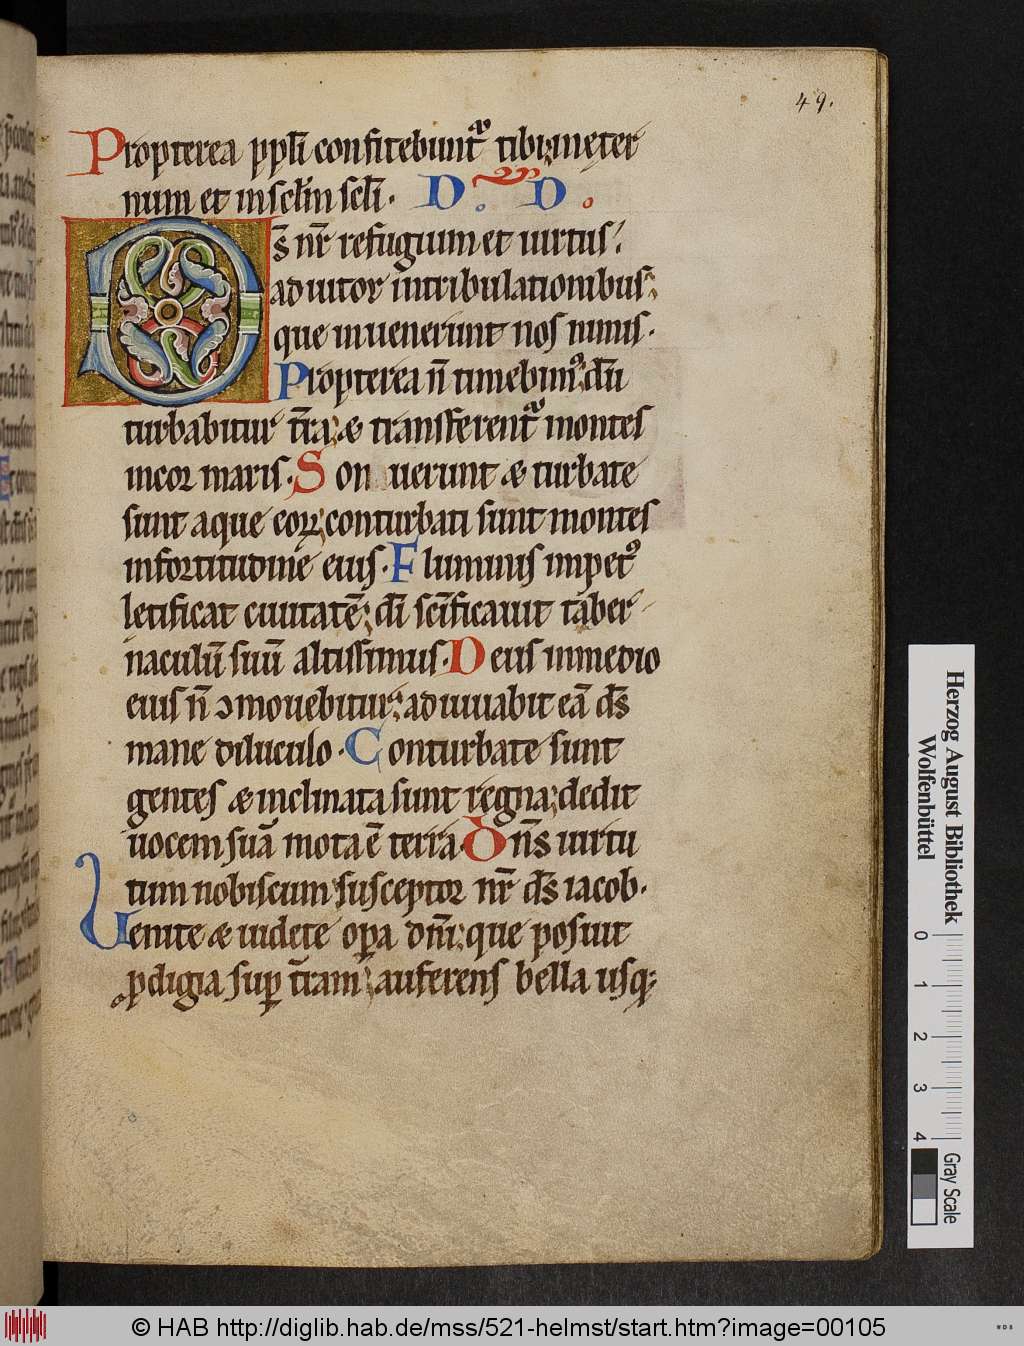 49.
Propterea ppl̄i confitebunt᷑ tibi; ineter
num et insclm̄ scl̄i. D. D.
s̄ nr̄ refugium et uirtus;
adiutor intribulationibus;
que inuenerunt nos nimis.
Propterea n̄ timebimꝰ; dū
turbabitur t̄ra; & transferent᷑ montes
incor maris. Son uerunt & turbate
sunt aque eoꝝ; conturbati sunt montes
infortitudine eius. Fluminis impetꝰ
letificat ciuitatē; dī sc̄ificauit taber
naculū suū altissimus. Deus inmedio
eius n̄ ɔmouebitur; adiuuabit eā ds̄
mane diluculo. Conturbate sunt
gentes & inclinata sunt regna; dedit
uocem suā mota ē terra. Dn̄s uirtu
tum nobiscum; susceptor nr̄ ds̄ iacob.
Uenite & uidete oꝑa dn̄i; que posuit
ꝓdigia suꝑ t̄ram; auferens bella usqꝫ
Herzog August Bibliothek
Wolfenbüttel
0 1 2 3 4
Gray Scale
© HAB http://diglib.hab.de/mss/521-helmst/start.htm?image=00105